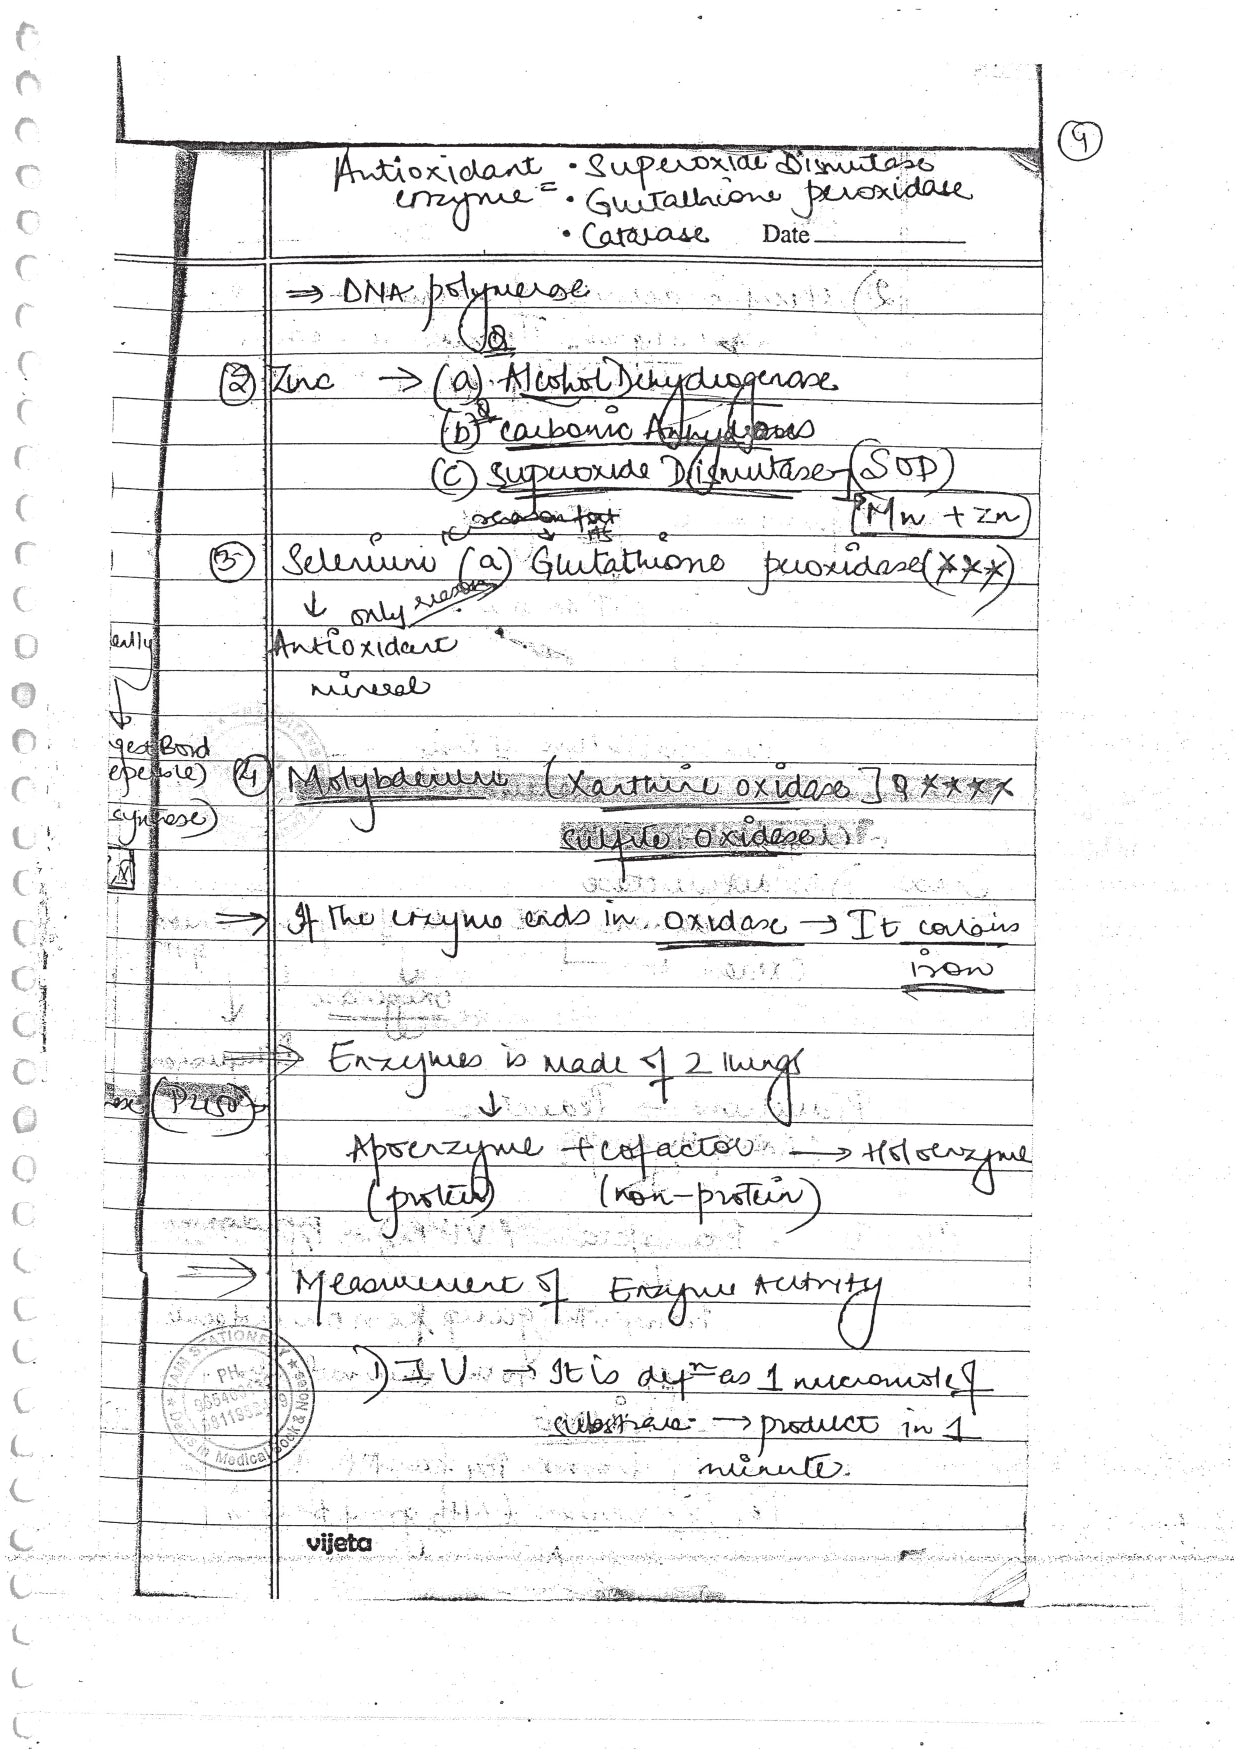 9
Antioxidant • Superoxide Dismutase
enzyme = • Glutathione peroxidase
• Catalase Date
⇒ DNA polymerase
Q
② Zinc → (a) Alcohol Dehydrogenase
(b) Q carbonic Anhydrases
(c) Superoxide Dismutase → (SOD)
Mn + Zn
reason for its
③ Selenium (a) Glutathione peroxidase (***)
↓ only reason
Antioxidant
mineral
④ Molybdenum (Xanthine oxidase] Q ****
sulfite oxidase
⇒ If the enzyme ends in oxidase → It contains
iron
⇒ Enzymes is made of 2 things
↓
Apoenzyme + cofactor → Holoenzyme
(protein) (non-protein)
⇒ Measurement of Enzyme Activity
1) I U → It is defⁿ as 1 micromole of
substrate → product in 1
minute.
STATIONERY
PH.
Medical Book & Notes
vijeta